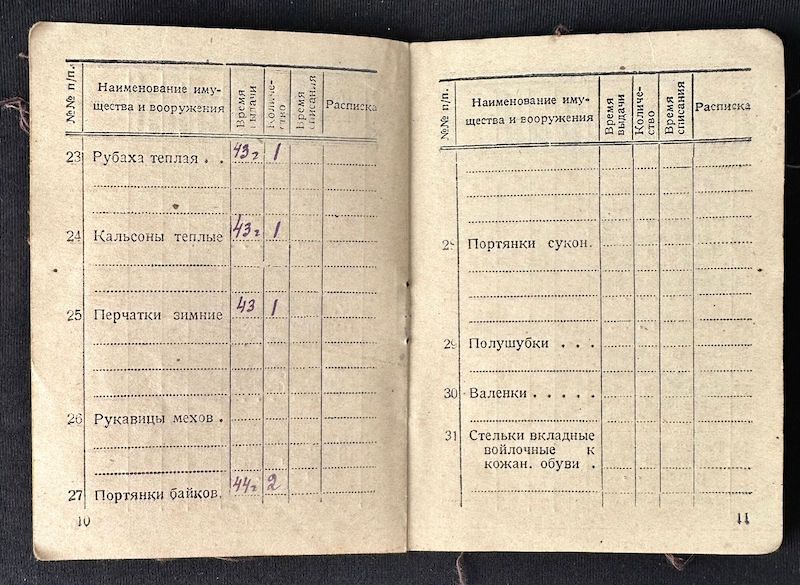 №№ п/п.
Наименование иму-
щества и вооружения
Время
выдачи
Количе-
ство
Время
списания
Расписка
23 Рубаха теплая . . 43г 1
24 Кальсоны теплые 43г 1
25 Перчатки зимние 43 1
26 Рукавицы мехов .
27 Портянки байков. 44г 2
10
№№ п/п.
Наименование иму-
щества и вооружения
Время
выдачи
Количе-
ство
Время
списания
Расписка
Портянки сукон.
29 Полушубки . . .
30 Валенки . . . . .
31 Стельки вкладные
войлочные к
кожан. обуви .
11